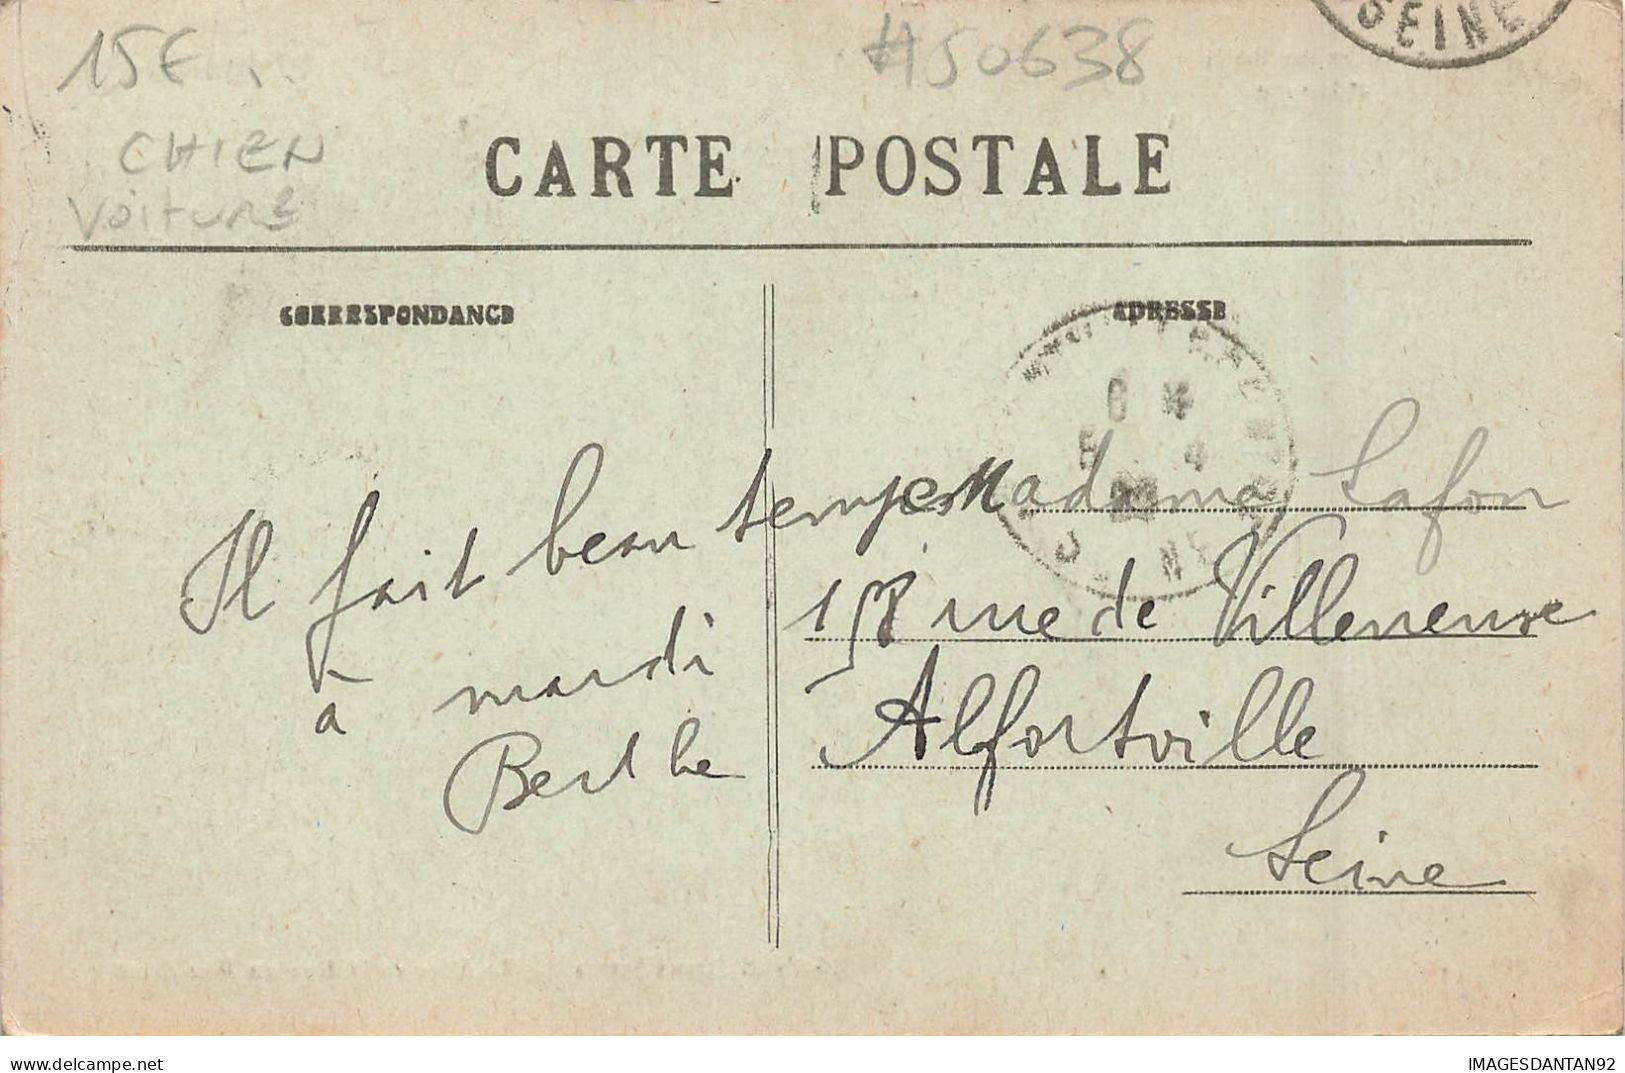 15€
#50638
SEINE
CHIEN
VOITURE
CARTE POSTALE
CORRESPONDANCE
ADRESSE
Il fait beau temps
à mardi
Berthe
Madame Lafon
158 rue de Villeneuve
Alfortville
Seine
delcampe.net
IMAGESDANTAN92